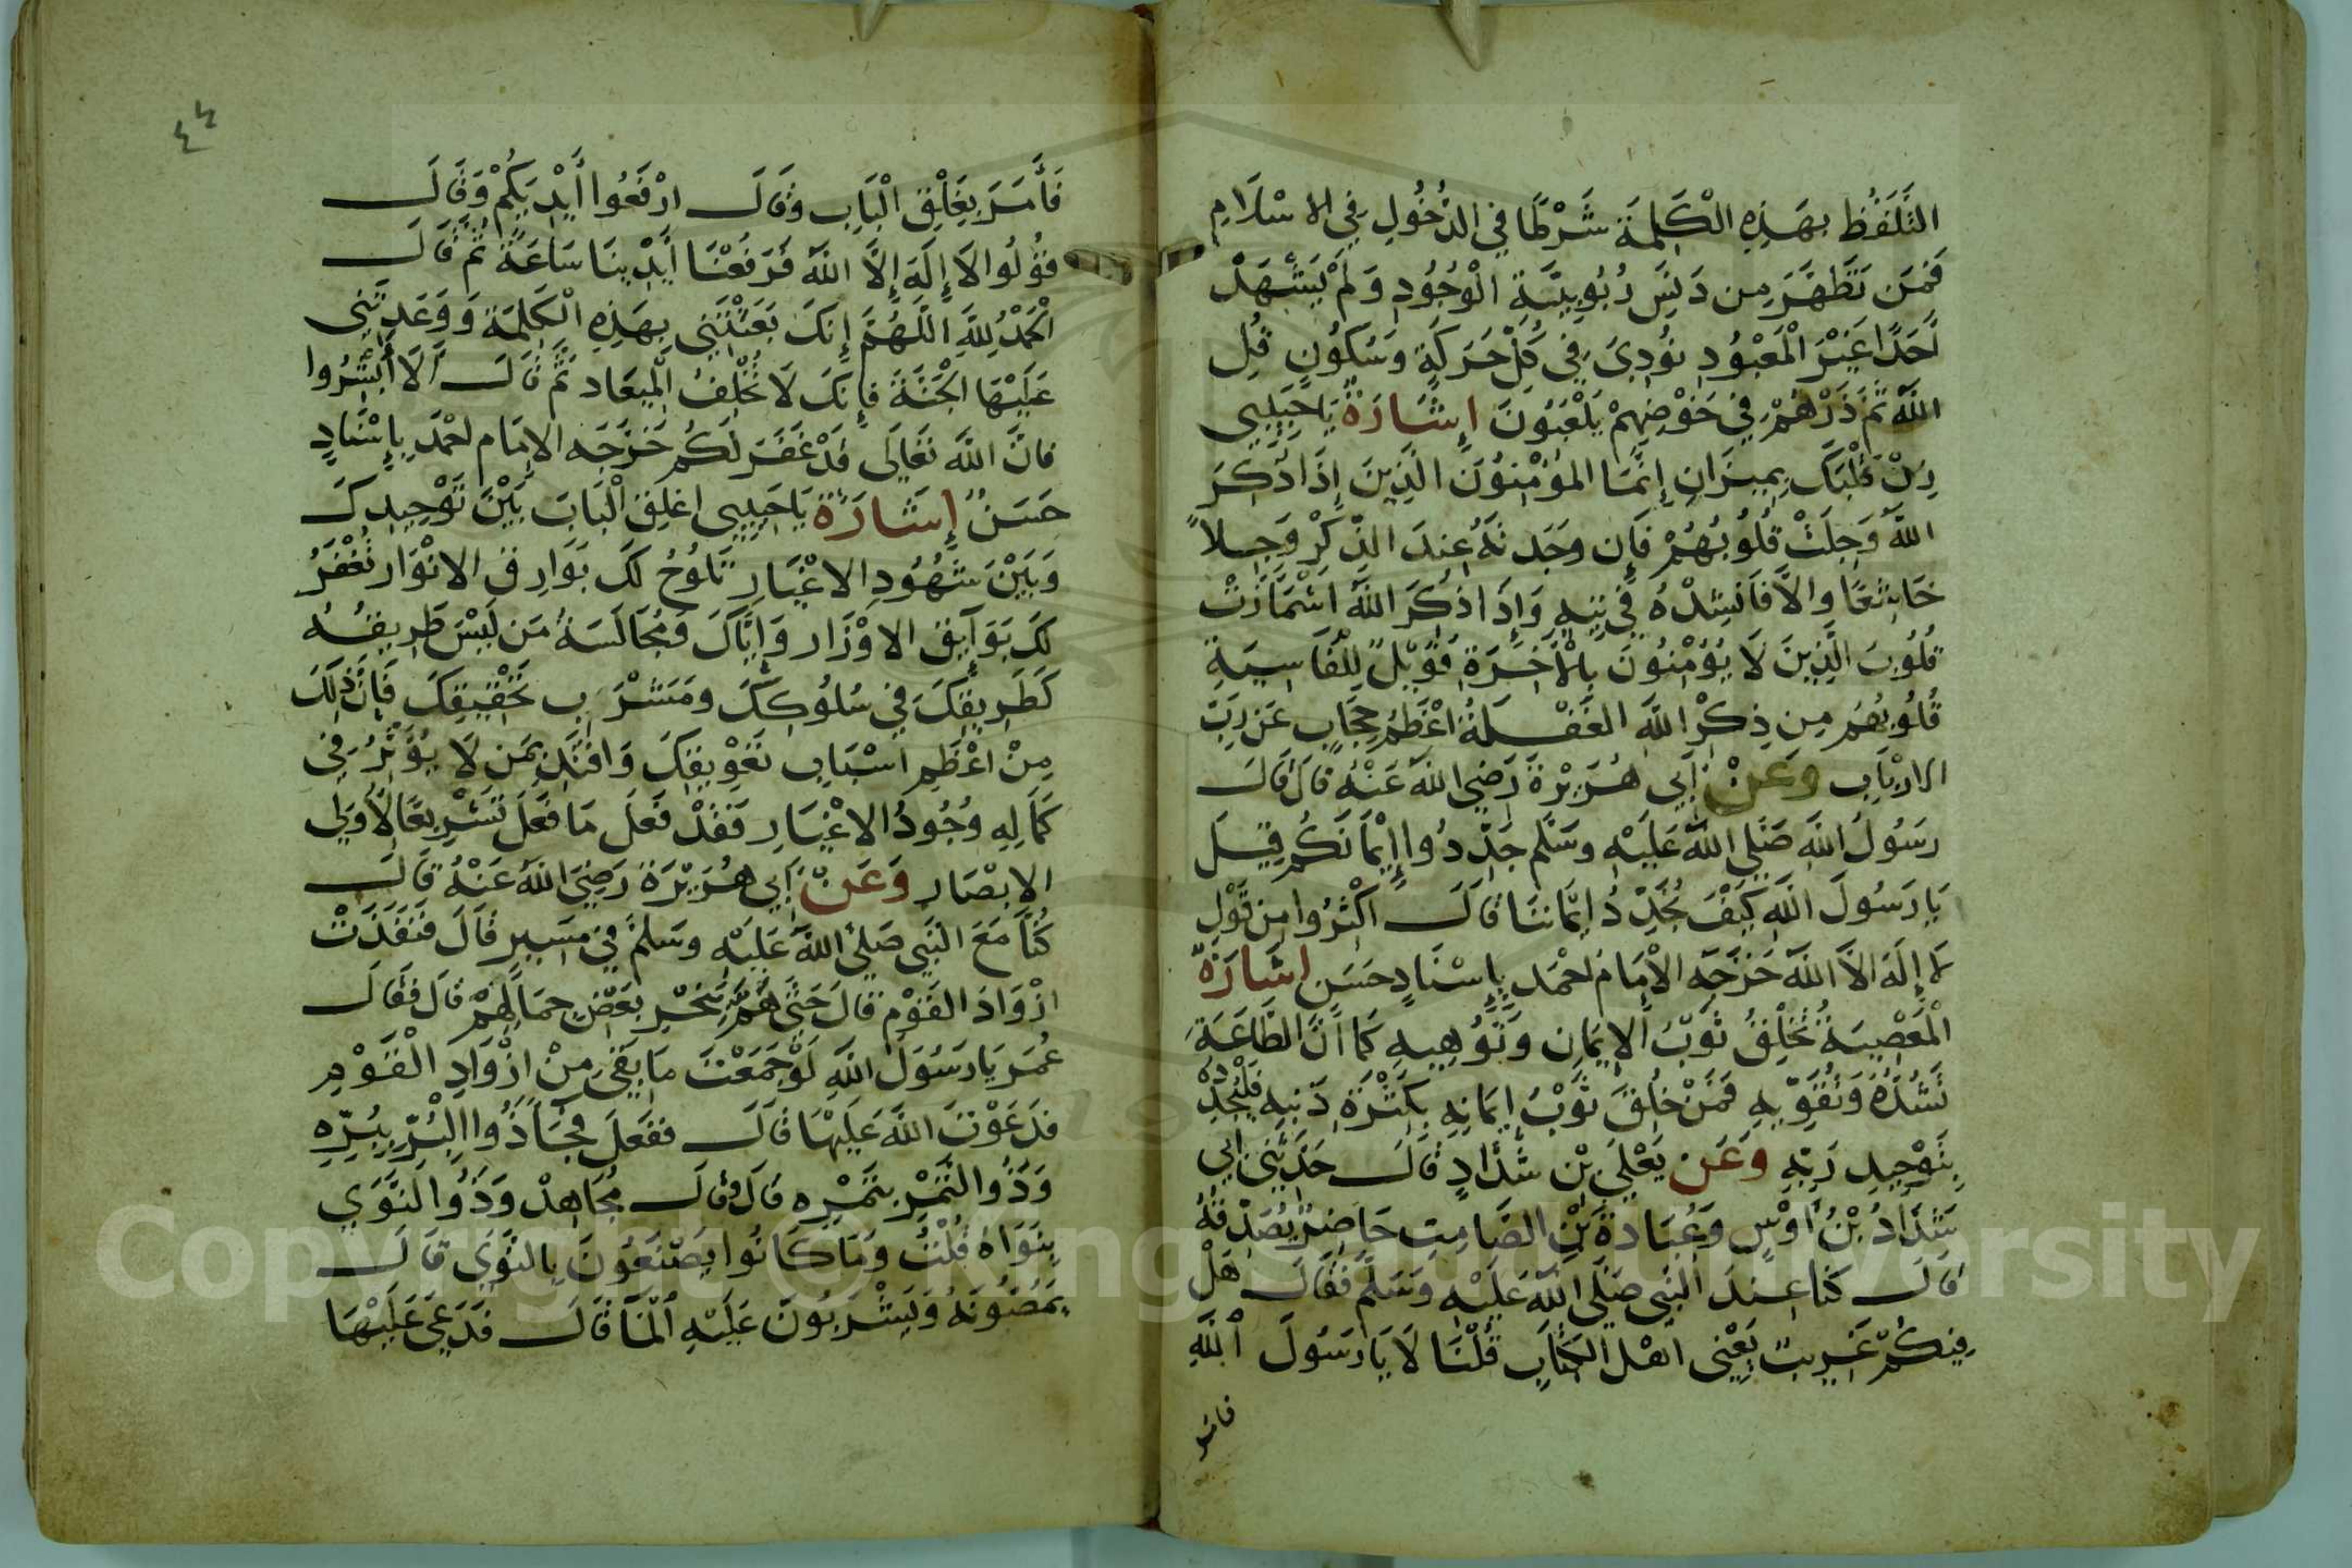 التَّلَفُّظ بهَذِهِ الْكَلِمَة شَرْطًا فِي الدُّخُولِ فِي الاسْلَامِ
فَمَن تَطَهَّرَ مِن دَنَسِ رُبُوبِيَّةِ الْوُجُودِ وَلَمْ يَشْهَدْ
أَحَدًا غَيْرَ الْمَعْبُودِ نُودِيَ فِي كُلِّ حَرَكَةٍ وَسُكُونٍ قُلِ
اللَّه ثُمَّ ذَرْهُمْ فِي خَوْضِهِمْ يَلْعَبُونَ إِشَارَةٌ يَا حَبِيبِي
زِنْ قَلْبَكَ بِمِيزَانِ إِنَّمَا الْمُؤْمِنُونَ الَّذِينَ إِذَا ذُكِرَ
اللَّه وَجِلَتْ قُلُوبُهُمْ فَإِن وَجَدتَهُ عِندَ الذِّكْرِ وَجِلاً
خَاشِعًا وَالاَّ فَانْشِدْهُ فِي تِيهِ وَإِذَا ذُكِرَ اللَّه اشْمَأَزَّتْ
قُلُوبَ الَّذِينَ لَا يُؤْمِنُونَ بِالْآخِرَةِ فَوَيْلٌ لِلْقَاسِيَةِ
قُلُوبُهُم مِن ذِكْرِ اللَّهِ الغَفْلَةُ اعْظَمُ حِجَابٍ عَن رَبِّ
الارْبَابِ وَعَنْ أَبِي هُرَيْرَةَ رَضِيَ اللَّه عَنْهُ قَالَ قَالَ
رَسُولُ اللَّهِ صَلَّى اللَّه عَلَيْهِ وسَلَّم جَدِّدُوا إِيْمَانَكُم قِيلَ
يَا رَسُولَ اللَّهِ كَيْفَ نُجَدِّدُ ايْمَانَنَا قَالَ اكْثِرُوا مِن قَوْلِ
لاَ إِلَهَ الاَّ اللَّه خَرَّجَه الْإِمَام احْمَد بِإِسْنَادٍ حَسَن اشَارَةٌ
الْمَعْصِيَةُ تُخْلِقُ ثَوْبَ الْإِيمَانِ وَتُوهِيهِ كَمَا أَنَّ الطَّاعَةَ
تَشُدُّهُ وَتُقَوِّيهِ فَمَنْ خَلِقَ ثَوْبُ إِيمَانِهِ بِكَثْرَةِ ذَنبِهِ فَلْيُجَدِّدْهُ
بِتَوْحِيدِ رَبِّهِ وَعَن يَعْلَى بْن شَدَّادٍ قَالَ حَدَّثَنِي أَبِي
شَدَّادُ بْنُ أَوْسٍ وَعُبَادَةُ بْنِ الصَّامِتِ حَاضِرٌ يُصَدِّقُهُ
قَالَ كُنَّا عِندَ النَّبِي صَلَّى اللَّه عَلَيْهِ وَسَلَّم فَقَالَ هَلْ
فِيكُمْ غَرِيبٌ يَعْنِي اهْل الكِتَابِ قُلْنَا لَا يَا رَسُولَ اللَّهِ
فامر
٤٤
فَأَمَرَ بِغَلْقِ الْبَابِ وَقَالَ ارْفَعُوا أَيْدِيَكُمْ وَقَالَ
قُولُوا لاَ إِلَهَ إِلاَّ اللَّه فَرَفَعْنَا أَيْدِينَا سَاعَةً ثُمَّ قَالَ
الْحَمْدُ لِلَّهِ اللَّهُمَّ إِنَّكَ بَعَثْتَنِي بِهَذِهِ الْكَلِمَةِ وَوَعَدتَنِي
عَلَيْهَا الْجَنَّةَ فَإِنَّكَ لَا تُخْلِفُ الْمِيعَاد ثُمَّ قَالَ أَلَا أَبْشِرُوا
فانَّ اللَّه تَعَالَى قَدْ غَفَرَ لَكُم خَرَّجَه الإمَام احْمَد بِإِسْنَادٍ
حَسَنٌ إِشَارَةٌ يَا حَبِيبِي اغلِقِ الْبَابَ بَيْنَ تَوْحِيدِكَ
وَبَيْنَ شُهُودِ الاغْيَارِ تَلُوحُ لَكَ بَوَارِقُ الانْوَار تُغْفَرُ
لَكَ بَوَايِق الاوْزَار وَإِيَّاكَ وَمُجَالَسَةُ مَن لَيْسَ طَرِيقُهُ
كَطَرِيقِكَ فِي سُلُوكِكَ وَمَشْرَبِ تَحْقِيقِكَ فَإِنَّ ذَلِكَ
مِنْ اعْظَمِ اسْبَابِ تَعْوِيقِكَ وَاقْتَدِ بِمَن لَا يُؤَثِّرُ فِي
كَمَالِهِ وُجُودُ الاغْيَارِ فَقَدْ فَعَلَ مَا فَعَلَ تَشْرِيعًا لأُولِي
الابْصَارِ وَعَنْ أَبِي هُرَيْرَةَ رَضِيَ اللَّهُ عَنْهُ قَالَ
كُنَّا مَعَ النَّبِي صَلَّى اللَّه عَلَيْهِ وسَلَّم فِي مَسِيرٍ قَالَ فَنَفَدَتْ
ازْوَادَ القَوْمِ قَالَ حَتَّى هَمَّ بِنَحْرِ بَعْضِ حِمَالِهِمْ قَالَ فَقَالَ
عُمَرَ يَا رَسُولَ اللَّهِ لَوْ جَمَعْتَ مَا بَقِيَ مِنْ ازْوَادِ الْقَوْمِ
فَدَعَوْتَ اللَّه عَلَيْهَا قَالَ ففَعَلَ فَجَاءَ ذُوا البُرِّ بِبُرِّهِ
وَذُوا التَّمْرِ بِتَمْرِهِ قَالَ وَقَالَ مُجَاهِدٌ وَذُوا النَّوَى
بِنَوَاهُ قُلْتُ وَمَا كَانُوا يَصْنَعُونَ بِالنَّوَى قَالَ
يَمُصُّونَهُ وَيَشْرَبُونَ عَلَيْهِ الْمَآ قَالَ فَدَعَى عَلَيْهَا
Copyright © King Saud University